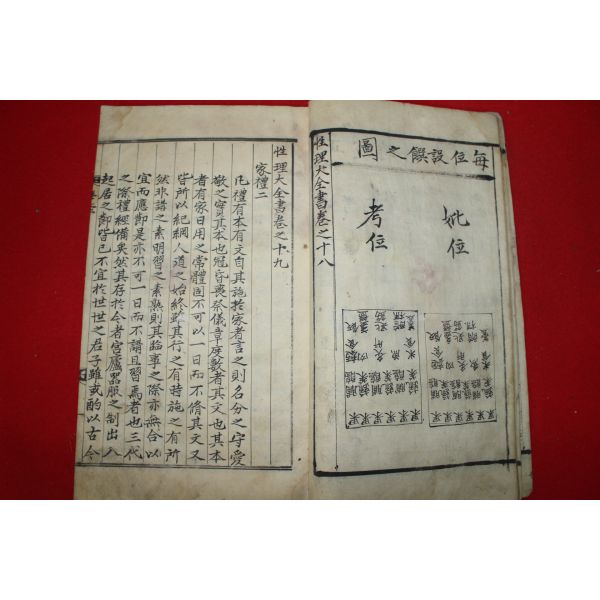 每位設饌之圖
妣位
考位
果果果果果果
果果果果果果
性理大全書卷之十八
性理大全書卷之十九
家禮二
凡禮有本有文自其施於家者言之則名分之守愛
敬之實其本也冠昏喪祭儀章度數者其文也其本
者有家日用之常體固不可以一日而不脩其文又
皆所以紀綱人道之始終雖其行之有時施之有所
然非講之素明習之素熟則其臨事之際亦無合以
宜而應節是亦不可一日而不講且習焉者也三代
之際禮經備矣然其存於今者宮廬器服之制出入
起居之節皆已不宜於世世之君子雖或酌以古今